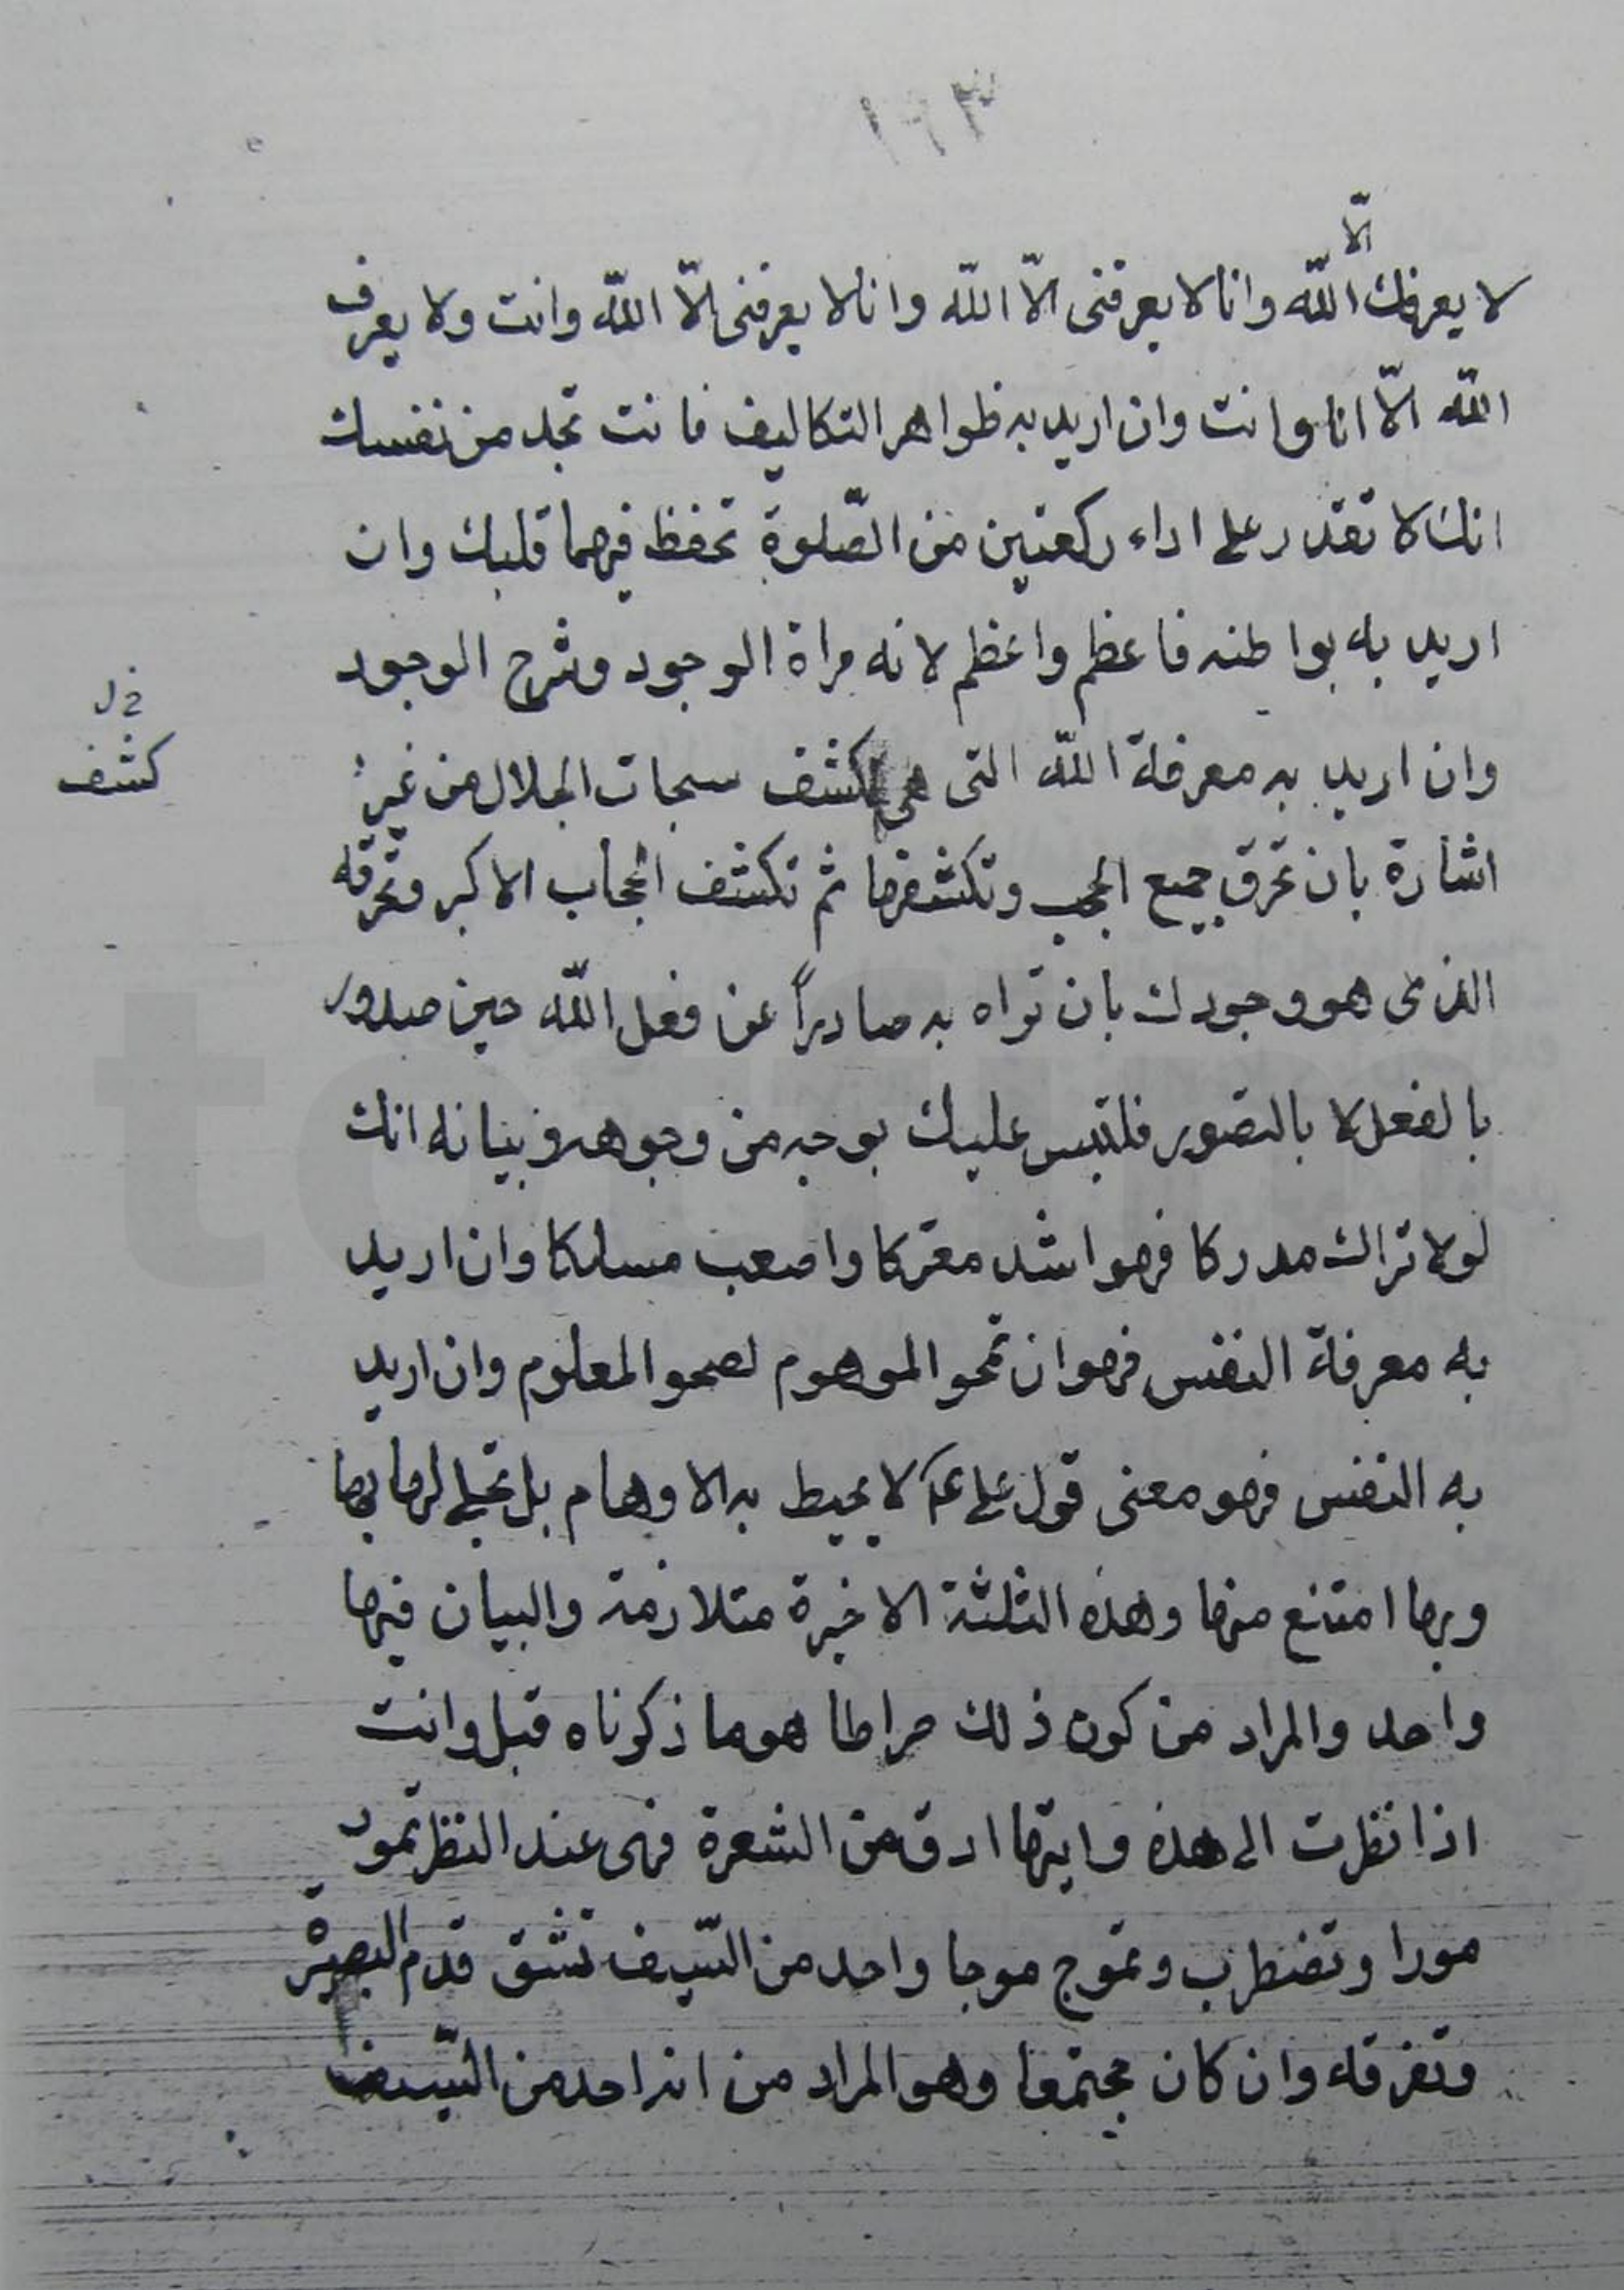 ١٦٣
الّا
لا يعرفك الله وانا لا يعرفنى الّا الله وانا لا يعرفنى الّا الله وانت ولا يعرف
الله الّا انا وانت وان اريد به ظواهر التكاليف فانت تجد من نفسك
انك لا تقدر على اداء ركعتين من الصّلوة تحفظ فيهما قلبك وان
اريد به بواطنه فاعظم واعظم لانه مراة الوجود وشرح الوجود
وان اريد به معرفة الله التى هى كشف سبحات الجلال من غير
خ ل
كشف
اشارة بان تخرق جميع الحجب وتكشفها ثم تكشف الحجاب الاكبر وتخرقه
الذى هو وجودك بان تراه به صادراً عن فعل الله حين صدور
بالفعل لا بالتصور فلتبس عليك بوجه من وجوهه وبيانه انك
لولا تراك مدركا فهو اشد معتركا واصعب مسلكا وان اريد
به معرفة النفس فهو ان تمحو الموهوم لصحو المعلوم وان اريد
به النفس فهو معنى قول على ع لا يحيط به الاوهام بل تجلى لها بها
وبها امتنع منها وهذه الثلثة الاخيرة متلازمة والبيان فيها
واحد والمراد من كون ذلك صراطا هو ما ذكوناه قبل وانت
اذا نظرت الى هذه وايتها ادق من الشعرة فهى عند النظر تمور
مورا وتضطرب وتموج موجا واحد من السّيف تشق قدم البصيرة
وتفرقه وان كان مجتمعا وهو المراد من انه احد من السّيف